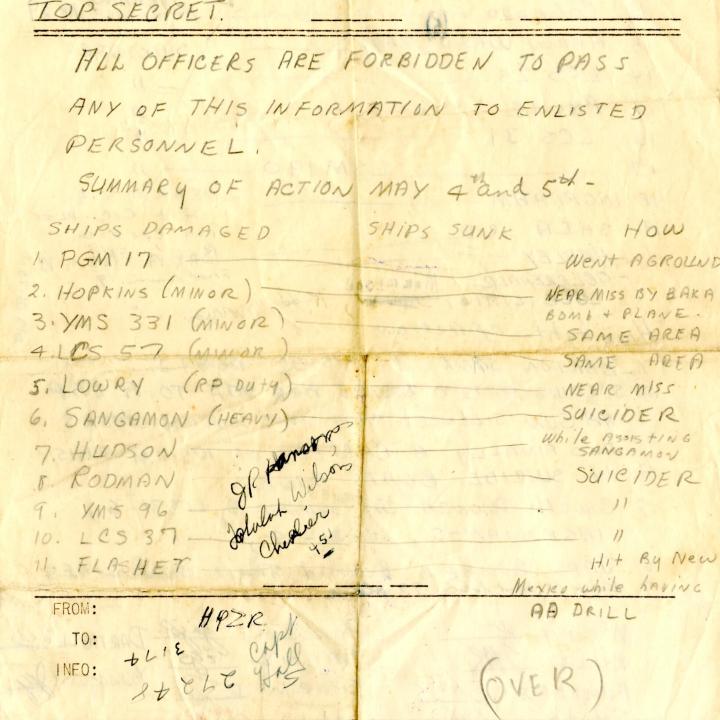 TOP SECRET.
ALL OFFICERS ARE FORBIDDEN TO PASS
ANY OF THIS INFORMATION TO ENLISTED
PERSONNEL.
SUMMARY OF ACTION MAY 4th and 5th -
SHIPS DAMAGED SHIPS SUNK HOW
1. PGM 17 Went AGROUND
2. HOPKINS (MINOR) NEAR MISS BY BAKA
BOMB + PLANE.
3. YMS 331 (MINOR) SAME AREA
4. LCS 57 (MINOR) SAME AREA
5. LOWRY (RP Duty) NEAR MISS
6. SANGAMON (HEAVY) SUICIDER
7. HUDSON While Assisting
SANGAMON
8. RODMAN SUICIDER
9. YMS 96 "
10. LCS 37 "
11. FLASHER Hit By New
Mexico while having
AA DRILL
JP
Wilson
'45
FROM:
TO:
INFO:
3174
Capt
Hall
27248
(OVER)